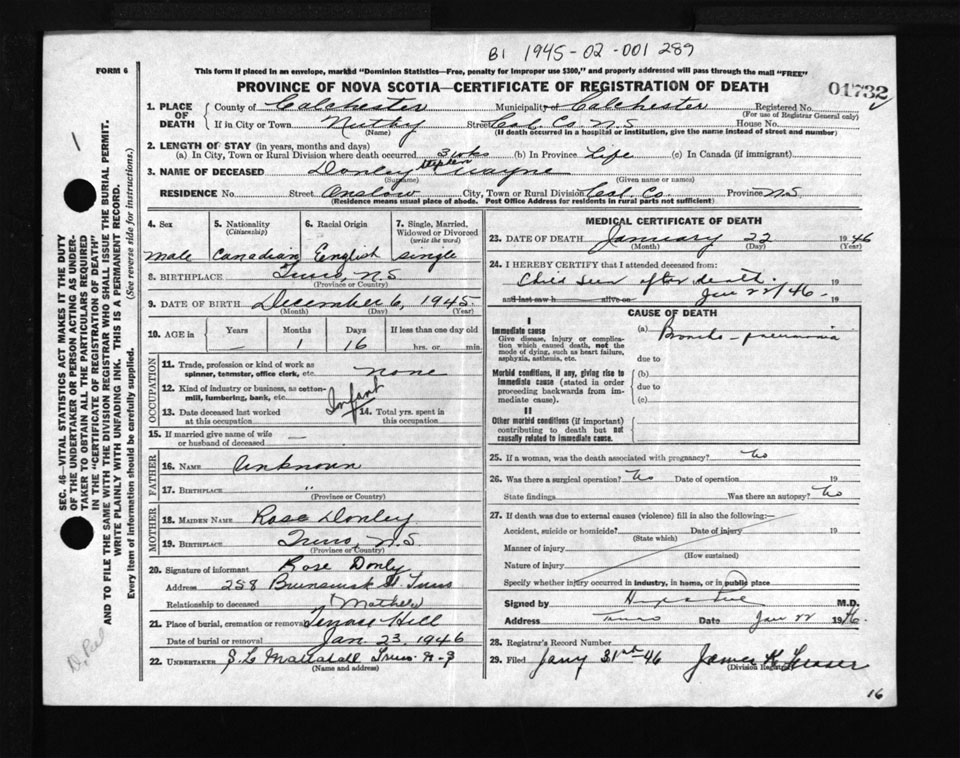 B1 1945-02-001289
FORM 6
This form if placed in an envelope, marked "Dominion Statistics—Free, penalty for improper use $300," and properly addressed will pass through the mail "FREE"
PROVINCE OF NOVA SCOTIA—CERTIFICATE OF REGISTRATION OF DEATH
01732
1. PLACE OF DEATH County of Colchester Municipality of Colchester Registered No.
(For use of Registrar General only)
If in City or Town Nutby Street Col. Co. N.S House No.
(Name) (If death occurred in a hospital or institution, give the name instead of street and number)
2. LENGTH OF STAY (in years, months and days)
(a) In City, Town or Rural Division where death occurred 3 wks (b) In Province Life (c) In Canada (if immigrant)
3. NAME OF DECEASED Donley Stephen Wayne
(Surname) (Given name or names)
RESIDENCE No. Street Onslow City, Town or Rural Division Col. Co. Province N.S
(Residence means usual place of abode. Post Office Address for residents in rural parts not sufficient)
4. Sex 5. Nationality (Citizenship) 6. Racial Origin 7. Single, Married, Widowed or Divorced (write the word)
male Canadian English single
8. BIRTHPLACE Truro, N.S
(Province or Country)
9. DATE OF BIRTH December 6, 1945
(Month) (Day) (Year)
10. AGE in Years Months Days If less than one day old
— 1 16 hrs. or min.
OCCUPATION
11. Trade, profession or kind of work as spinner, teamster, office clerk, etc. none
12. Kind of industry or business, as cotton-mill, lumbering, bank, etc. Infant
13. Date deceased last worked at this occupation 14. Total yrs. spent in this occupation
15. If married give name of wife or husband of deceased —
FATHER
16. NAME Unknown
17. BIRTHPLACE "
(Province or Country)
MOTHER
18. MAIDEN NAME Rose Donley
19. BIRTHPLACE Truro, N.S.
(Province or Country)
20. Signature of informant Rose Donley
Address 258 Brunswick St. Truro
Relationship to deceased (Mother)
21. Place of burial, cremation or removal Terrace Hill
Date of burial or removal Jan. 23, 1946
22. UNDERTAKER Truro N-S
(Name and address)
MEDICAL CERTIFICATE OF DEATH
23. DATE OF DEATH January 22 1946
(Month) (Day) (Year)
24. I HEREBY CERTIFY that I attended deceased from:
Child seen after death. 19
and last saw h alive on Jan 22/46. 19
CAUSE OF DEATH
I
Immediate cause (a) Broncho-pneumonia
Give disease, injury or complication which caused death, not the mode of dying, such as heart failure, asphyxia, asthenia, etc. due to
Morbid conditions, if any, giving rise to immediate cause (stated in order proceeding backwards from immediate cause). (b)
due to
(c)
II
Other morbid conditions (if important) contributing to death but not causally related to immediate cause.
25. If a woman, was the death associated with pregnancy? No
26. Was there a surgical operation? No Date of operation 19
State findings Was there an autopsy? No
27. If death was due to external causes (violence) fill in also the following:—
Accident, suicide or homicide? Date of injury 19
(State which)
Manner of injury
(How sustained)
Nature of injury
Specify whether injury occurred in industry, in home, or in public place
Signed by M.D.
Address Truro Date Jan 22 1946.
28. Registrar's Record Number
29. Filed Jany 31st 46 James K Fraser
(Division Registrar)
16
SEC. 46—VITAL STATISTICS ACT MAKES IT THE DUTY
OF THE UNDERTAKER OR PERSON ACTING AS UNDER-
TAKER TO OBTAIN ALL THE PARTICULARS REQUIRED
IN THE "CERTIFICATE OF REGISTRATION OF DEATH"
AND TO FILE THE SAME WITH THE DIVISION REGISTRAR WHO SHALL ISSUE THE BURIAL PERMIT.
WRITE PLAINLY WITH UNFADING INK. THIS IS A PERMANENT RECORD.
Every item of information should be carefully supplied. (See reverse side for instructions.)